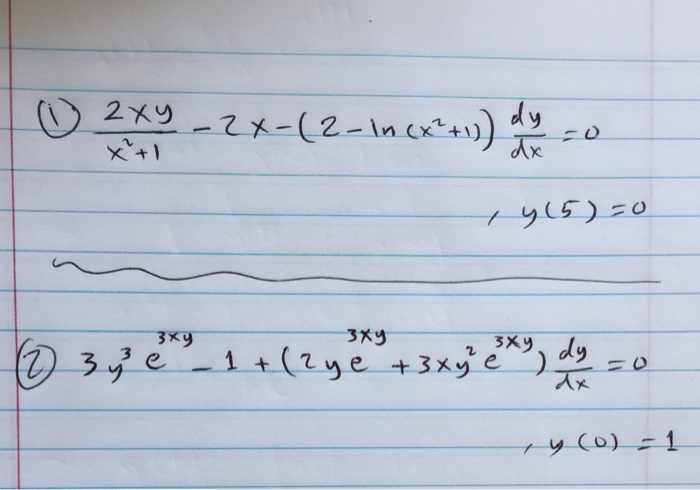 ① 2xy/(x²+1) - 2x - (2 - ln(x²+1)) dy/dx = 0
, y(5) = 0
② 3y³e^(3xy) - 1 + (2ye^(3xy) + 3xy²e^(3xy)) dy/dx = 0
, y(0) = 1